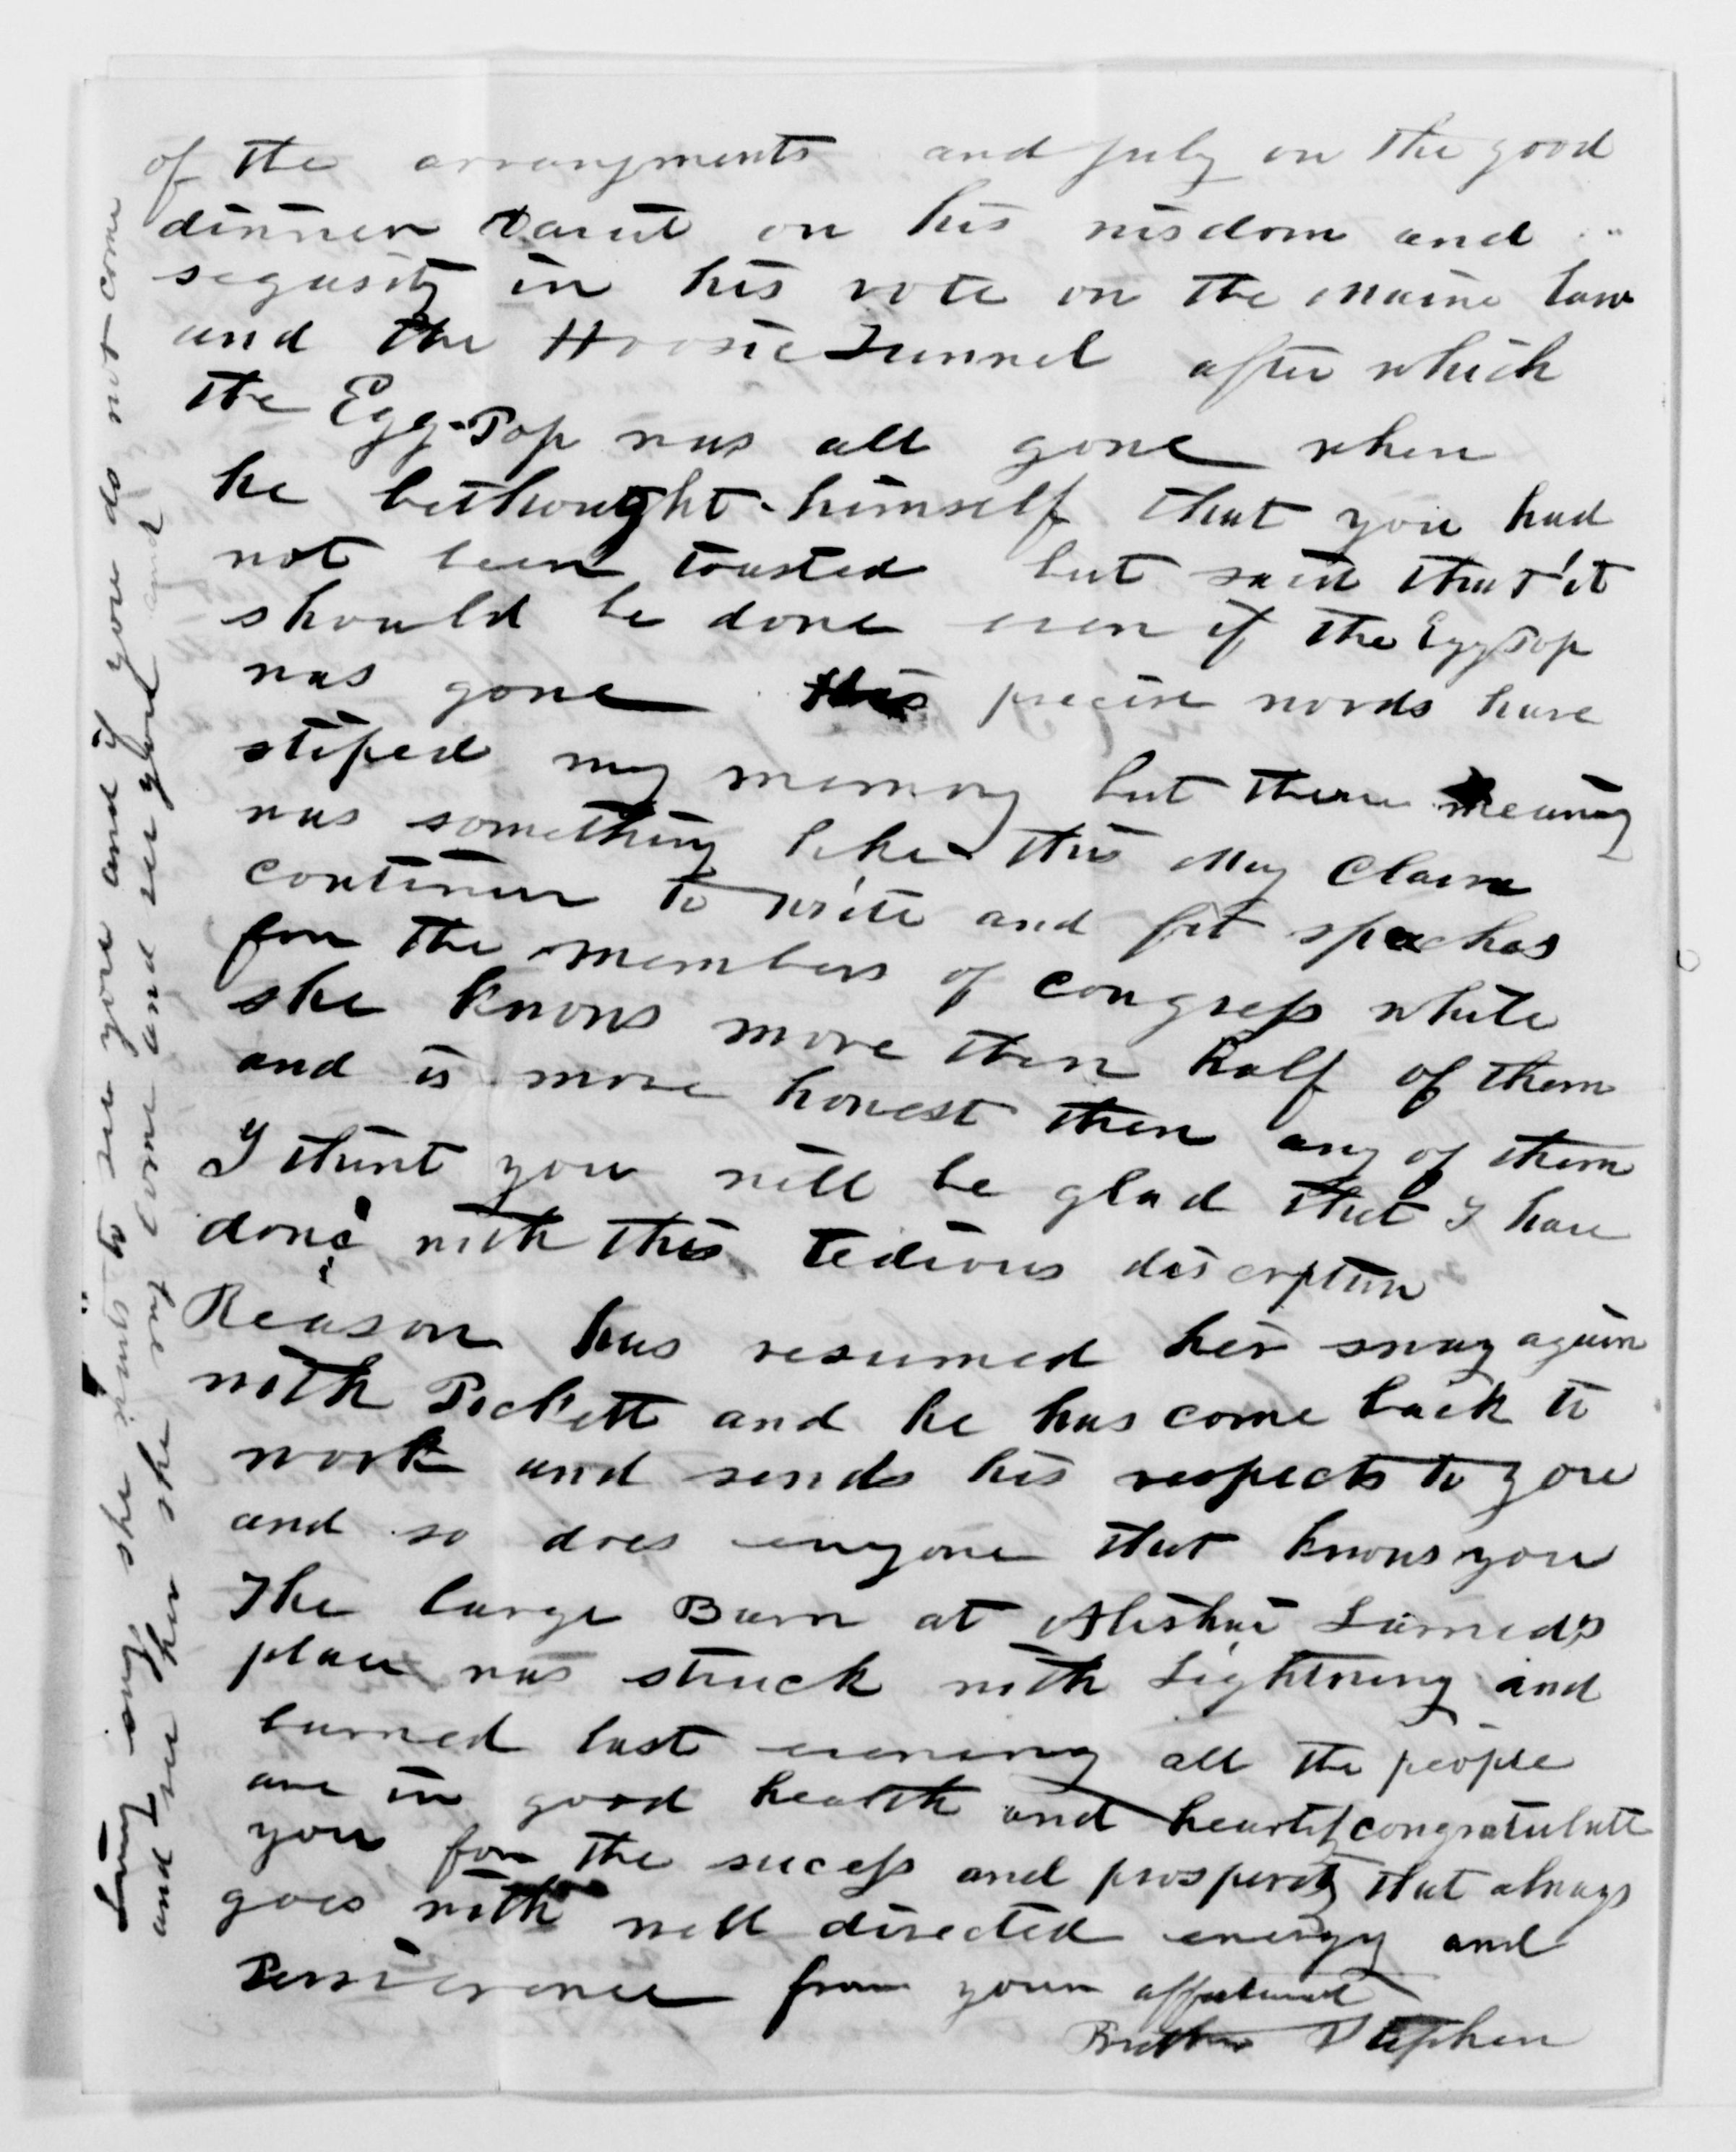 of the arrangments and July on the good
dinner on his wisdom and
segasity in his vote on the Maine law
and the Hoosic Tunnel after which
the Egg-Pop was all gone when
he bethought-himself that you had
not been toasted but said that it
should be done even if the EggPop
was gone the precise words have
sliped my memory but there meaning
was something like this May Clara
continue to write and fit speaches
for the members of Congress while
she knows more then half of them
and is more honest then any of them
I think you will be glad that I have
done with this tedious discription
Reason has resumed her sway again
with Pockett and he has come back to
work and sends his respects to you
and so does everyone that knows you
The large Barn at Larneds
place was struck with Lightning and
burned last evening all the people
are in good health and heartily congratulate
you for the success and prosperity that always
goes with well directed energy and
Perseverence from your affectunat
Brother Stephen
say she wants to see you and if you do not come
and see her she will come and see you and